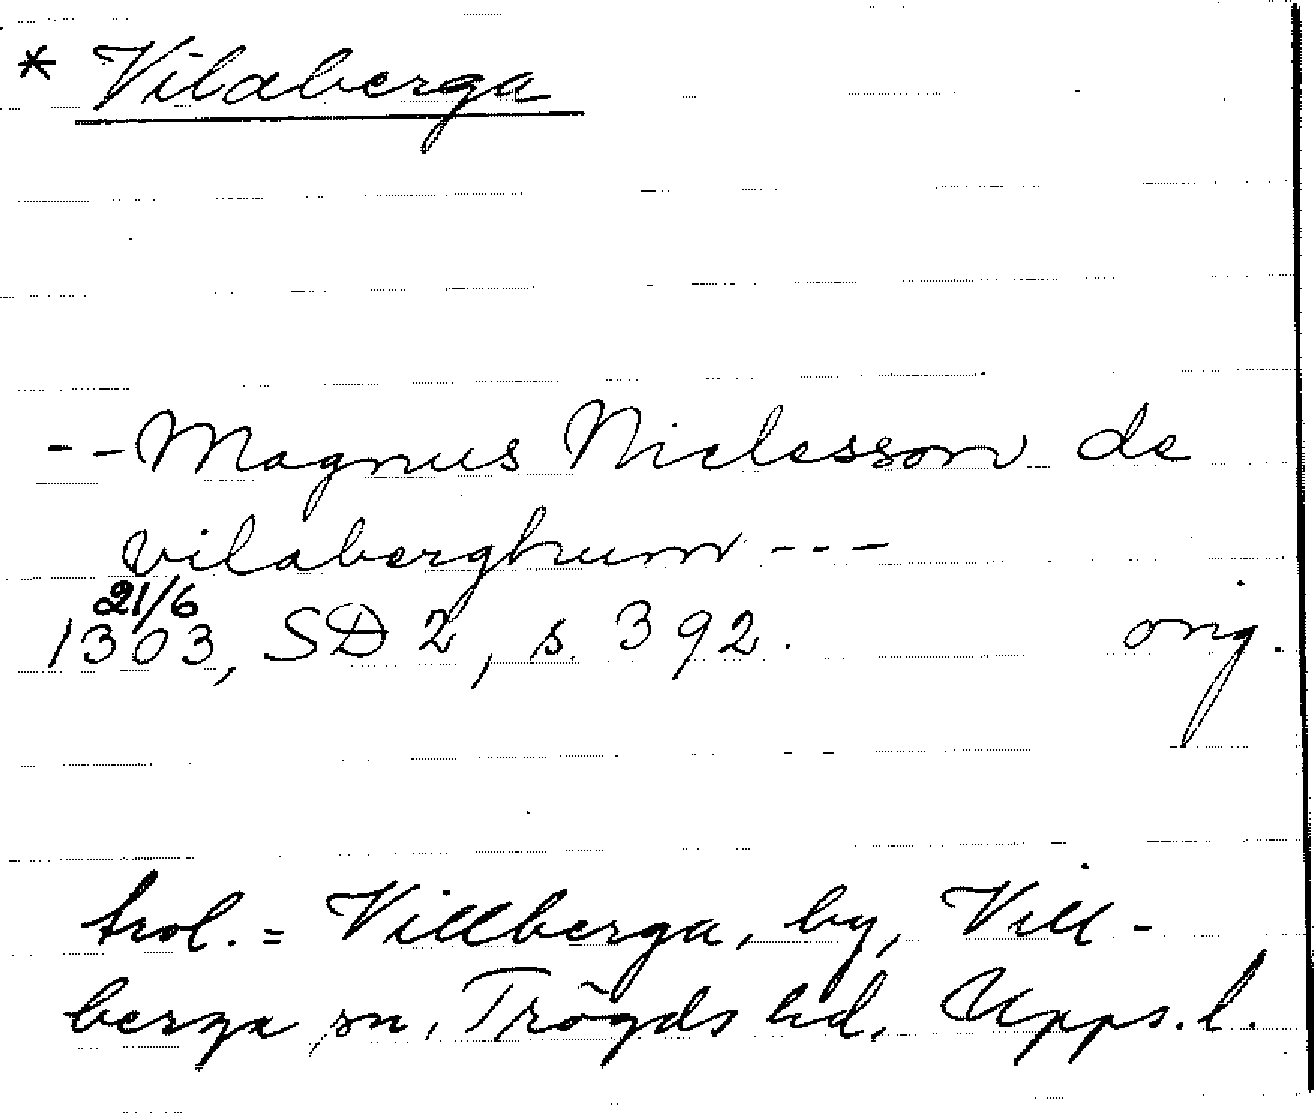 * Vilaberga
-- Magnus Niclesson de
vilaberghum ---
21/6
1303, SD 2, s. 392. orig.
trol. = Villberga, by, Vill-
berga sn, Trögds hd, Upps. l.